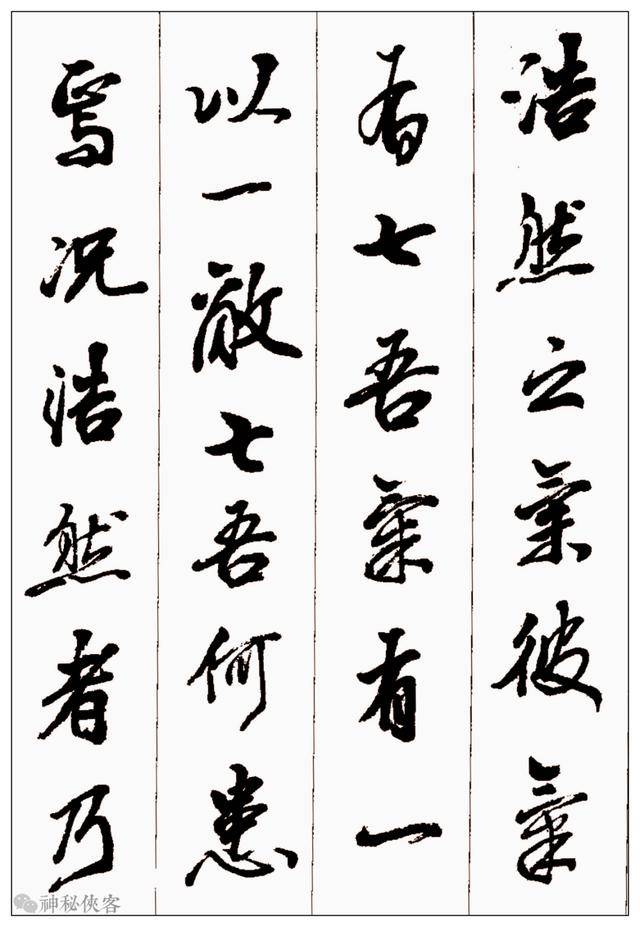 浩然之氣彼氣
有七吾氣有一
以一敵七吾何患
焉況浩然者乃
神秘俠客